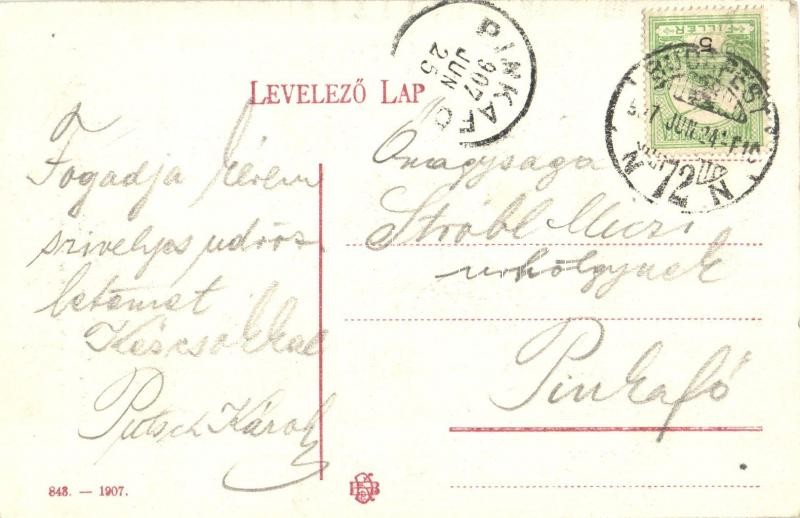 LEVELEZŐ LAP
PINKAFŐ
907
JUN
25
FILLÉR
5
BUDAPEST
907 JUN. 24
N 72 N
Fogadja kérem
szivelyes üdvöz
letemet
Kézcsókkal
Putsch Károly
Önagysága
Ströbl Miczi
urhölgynek
Pinkafő
843. — 1907.